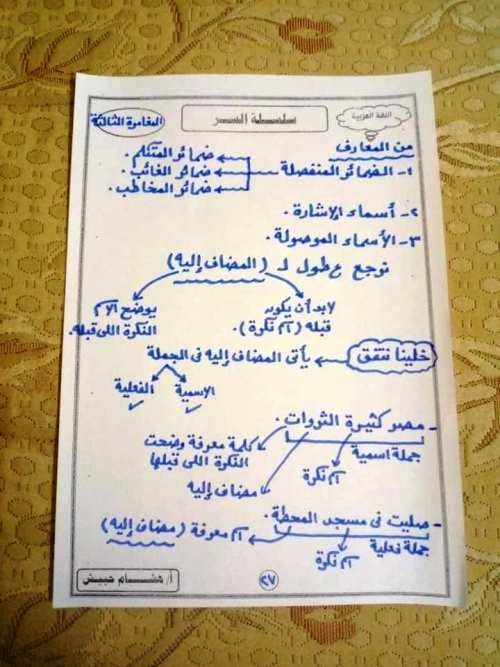 اللغة العربية
سلسلة السر
المغامرة الثالثة
من المعارف
١- الضمائر المنفصلة
ضمائر المتكلم.
ضمائر الغائب.
ضمائر المخاطب.
٢- أسماء الاشارة.
٣- الأسماء الموصولة.
نرجع ع طول لـ (المضاف إليه)
لابد أن يكون قبله (اسم نكرة).
يوضح الاسم النكرة اللى قبله.
خلينا نتفق
يأتى المضاف إليه فى الجملة
الاسمية
الفعلية
- مصر كثيرة الثروات.
جملة اسمية
اسم نكرة
مضاف إليه
كلمة معرفة وضحت النكرة اللى قبلها
- صليت فى مسجد المحطة.
جملة فعلية
اسم نكرة
اسم معرفة (مضاف إليه)
٢٧
أ/ هشام حبيش